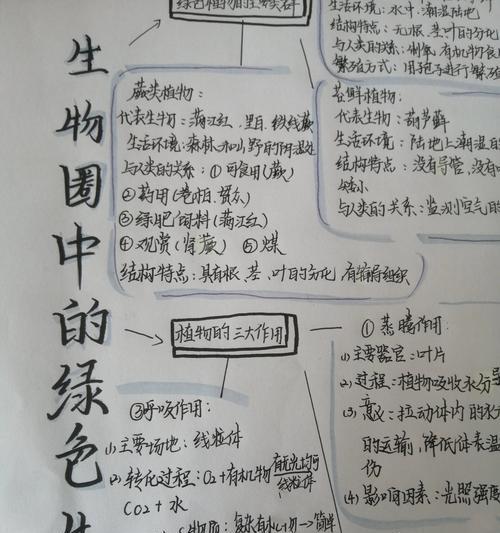 生物圈中的绿色
绿色植物的主要类群
生活环境：水中、潮湿陆地
结构特点：无根、茎、叶的分化
与人类的关系：制氧、有机物食用
繁殖方式：用孢子进行繁殖
蕨类植物：
代表生物：满江红、里白、铁线蕨
生活环境：森林和山野的阴湿处
与人类的关系：①可食用(蕨)
②药用(卷柏、贯众)
③绿肥饲料(满江红)
④观赏(肾蕨) ⑤煤
结构特点：具有根、茎、叶的分化，有输导组织
苔藓植物：
代表生物：葫芦藓
生活环境：陆地上潮湿的
结构特点：没有导管，没有
矮小
与人类的关系：监测空气的
植物的三大作用
①蒸腾作用：
(1)主要器官：叶片
(2)过程：植物吸收水分
(3)意义：拉动体内的水
的运输，降低体表温
伤
(4)影响因素：光照强度
③呼吸作用：
(1)主要场地：线粒体
(2)转化过程：O2+有机物 有光无光均可 线粒体
CO2+水
物质：复杂有机物→简单